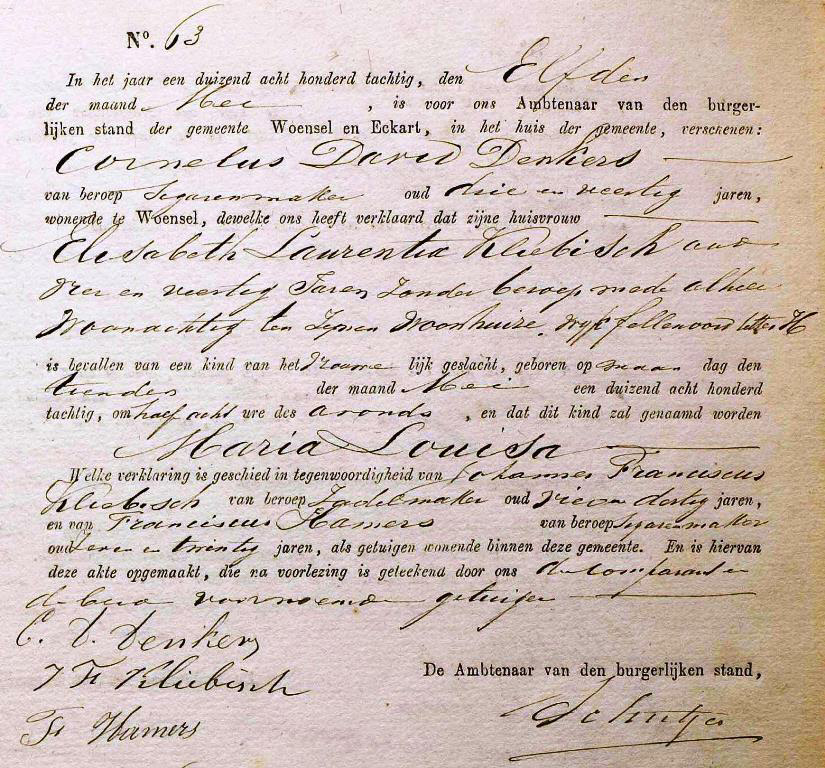 N°. 63
In het jaar een duizend acht honderd tachtig, den Elfden
der maand Mei , is voor ons Ambtenaar van den burger-
lijken stand der gemeente Woensel en Eckart, in het huis der gemeente, verschenen:
Cornelus David Denkers
van beroep Segarenmaker oud drie en veertig jaren,
wonende te Woensel, dewelke ons heeft verklaard dat zijne huisvrouw
Elisabeth Laurentia Kliebisch oud
vier en veertig Jaren Zonder beroep mede alhier
Woonachtig ten Zijnen Woonhuize, wijk fellenoord letter H
is bevallen van een kind van het vrouwe lijk geslacht, geboren op maan dag den
tienden der maand Mei een duizend acht honderd
tachtig, om half acht ure des avonds , en dat dit kind zal genaamd worden
Maria Louisa
Welke verklaring is geschied in tegenwoordigheid van Johannes Franciscus
Kliebisch van beroep Zadelmaker oud vier en dertig jaren,
en van Franciscus Hamers van beroep Segarenmaker
oud Zeven en twintig jaren, als getuigen wonende binnen deze gemeente. En is hiervan
deze akte opgemaakt, die na voorlezing is geteekend door ons de comparant en
de beide voornoemde getuigen
C. D. Denkers
J F Kliebisch
Fr Hamers
De Ambtenaar van den burgerlijken stand,